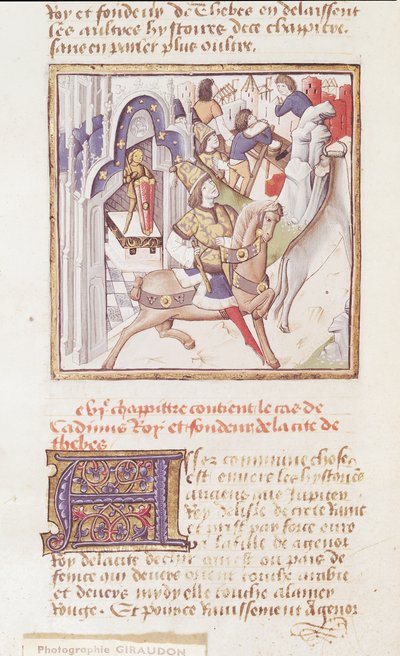 Roy et fondeur de thebes en delaissent
les aultres hystoires de ce chappitre
sans en parler plus oultre.
chappittre contient le cas de
Cadmus Roy et fondeur de la cite de
thebes
Assez commune chose
est envers les hystoriens
anciens que Jupiter
Roy de lisle de crete Ravit
et prist par force euro
pa la fille de agenor
Roy de la cite de ou pais de
fenice qui devers orient touche arabie
et devers mydy elle touche la mer
Rouge. Et pour ce Ravissement Agenor
Photographie GIRAUDON